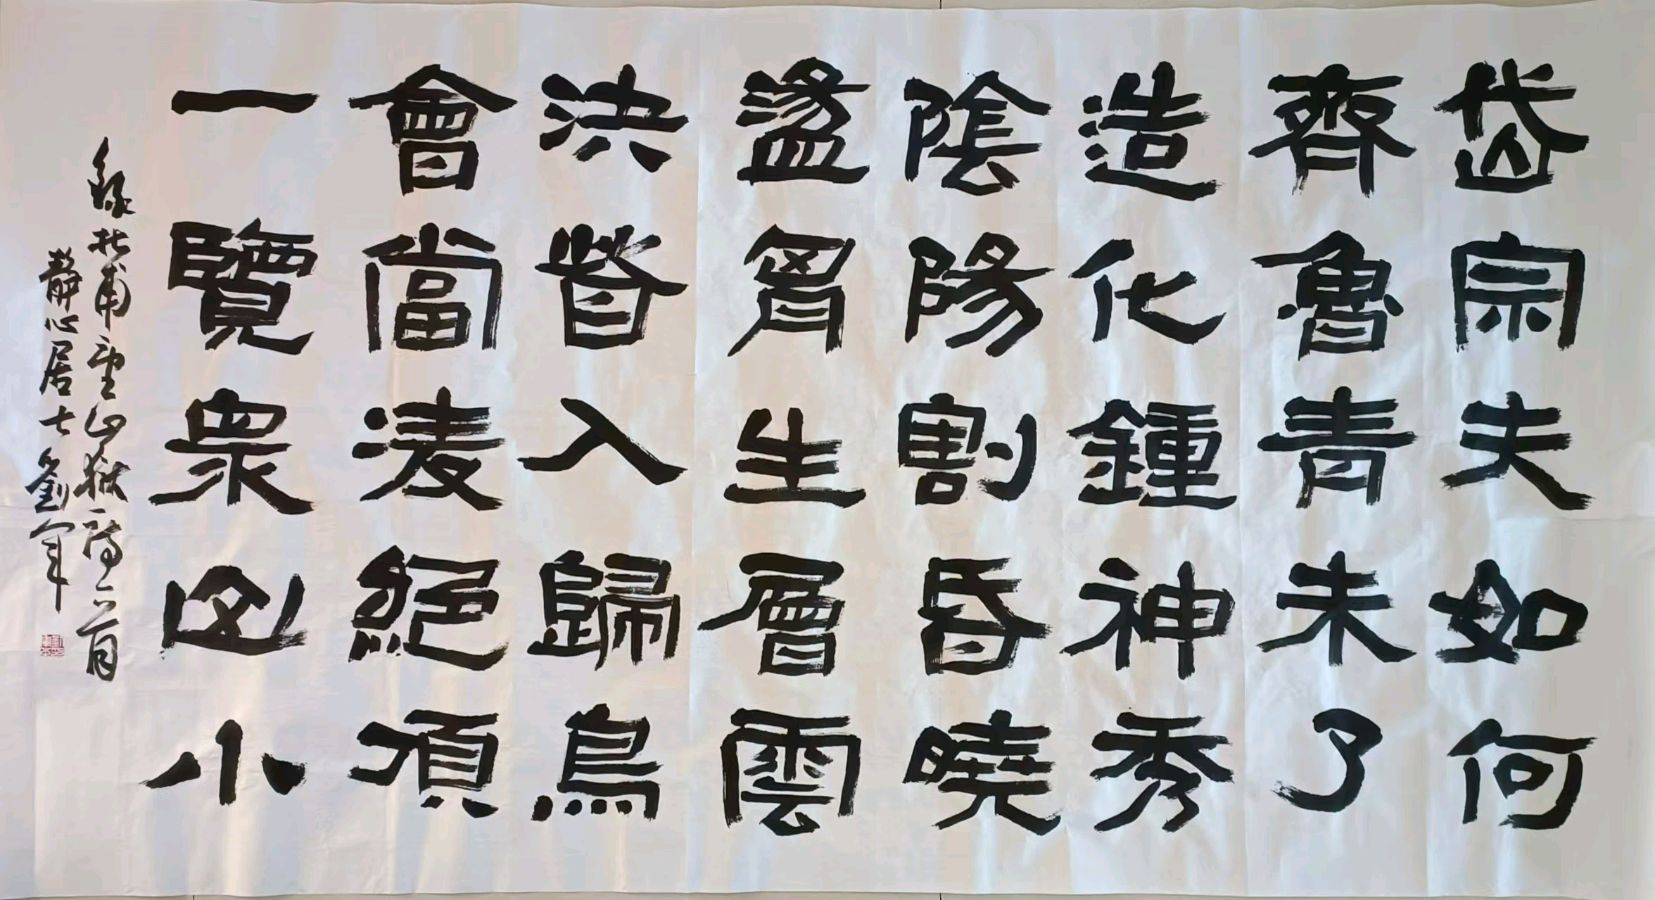 岱宗夫如何
齊魯青未了
造化鍾神秀
陰陽割昏曉
盪胷生層雲
決眥入歸鳥
會當凌絕頂
一覽衆山小
錄杜甫望山嶽詩一首
靜心居士劉軍